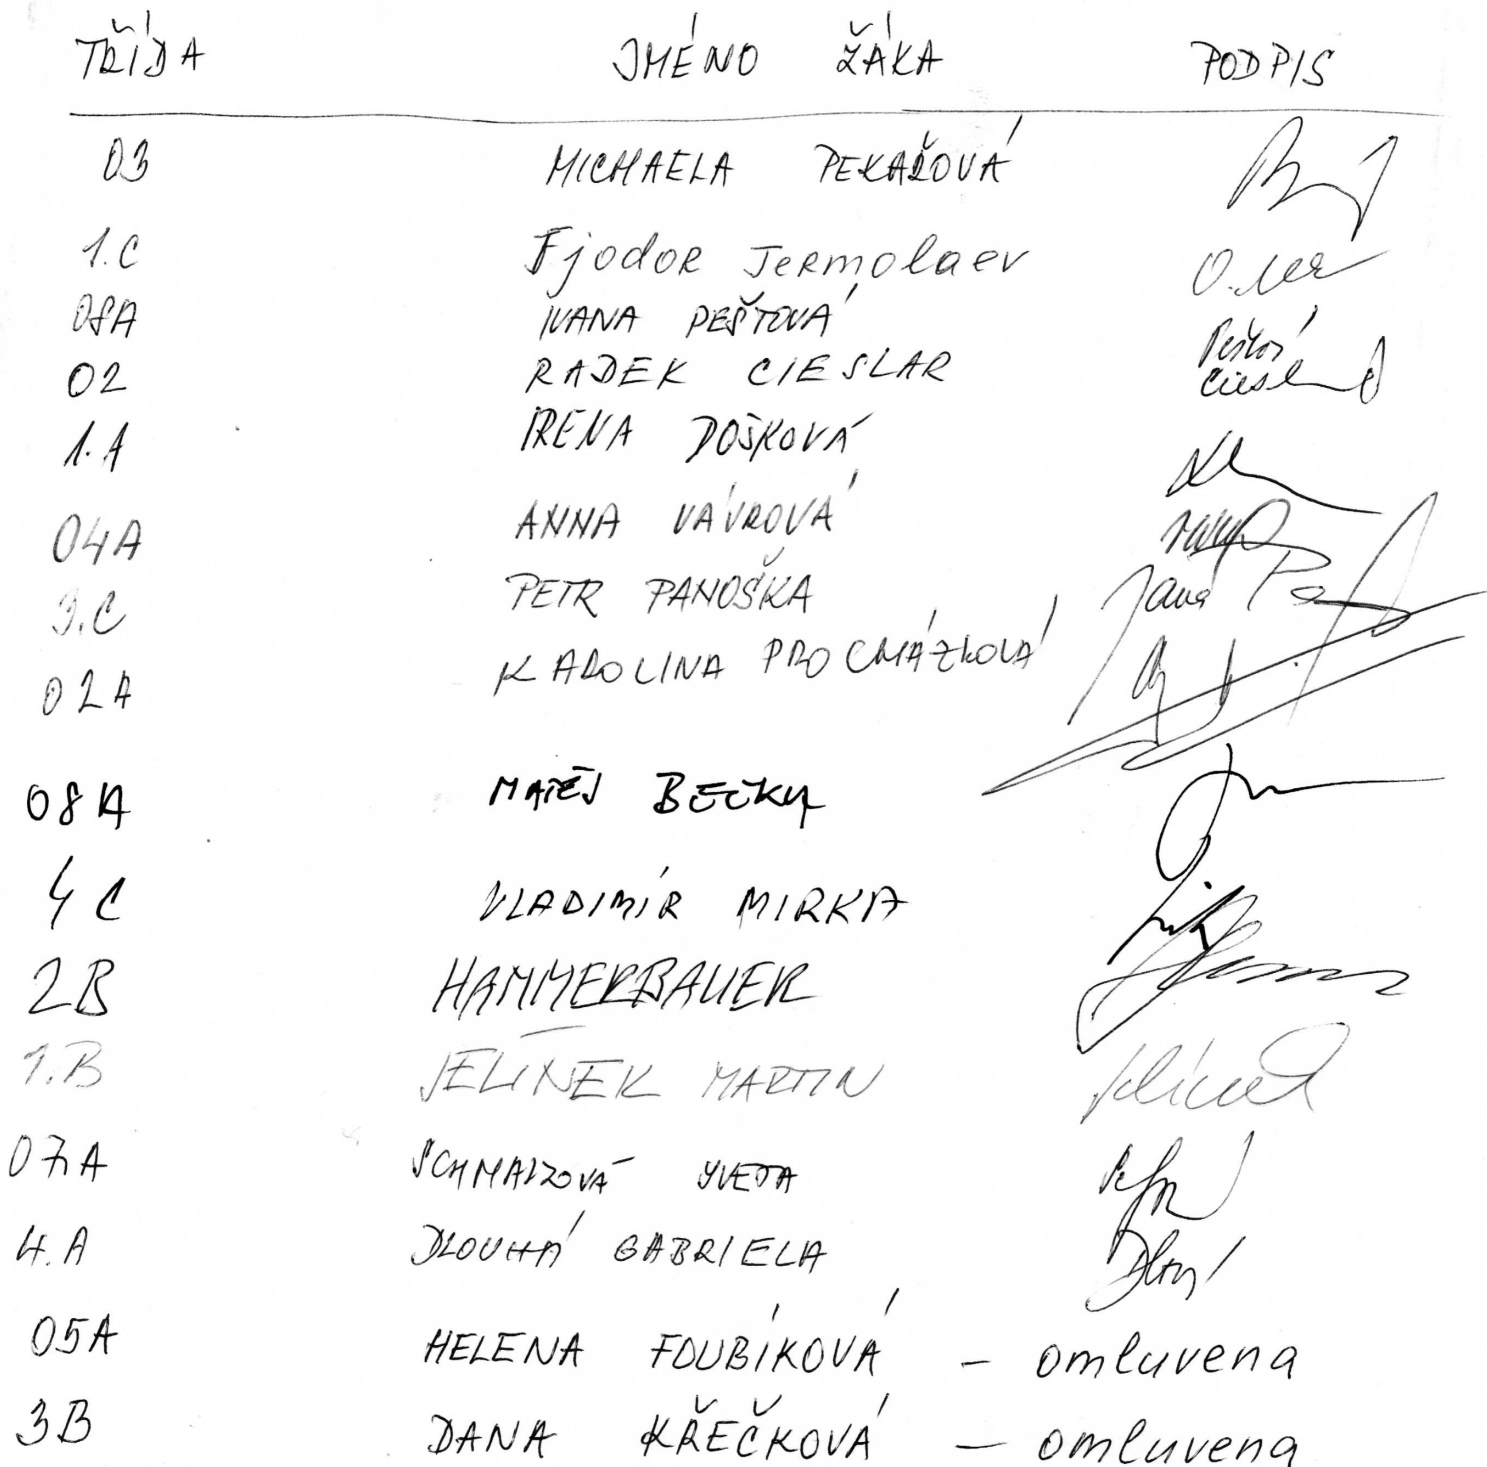 TŘÍDA JMÉNO ŽÁKA PODPIS
03 MICHAELA PEKAŘOVÁ
1.C Fjodor Jermolaev
08A IVANA PEŠTOVÁ
02 RADEK CIESLAR
1.A IRENA DOŠKOVÁ
04A ANNA VÁVROVÁ
3.C PETR PANOŠKA
02A KAROLINA PROCHÁZKOVÁ
08A MATĚJ BEČKA
4C VLADIMÍR MIRKA
2B HAMMERBAUER
1.B JELÍNEK MARTIN
07A SCHMALZOVÁ YVETA
4.A DLOUHÁ GABRIELA
05A HELENA FOUBÍKOVÁ – omluvena
3B DANA KŘEČKOVÁ – omluvena